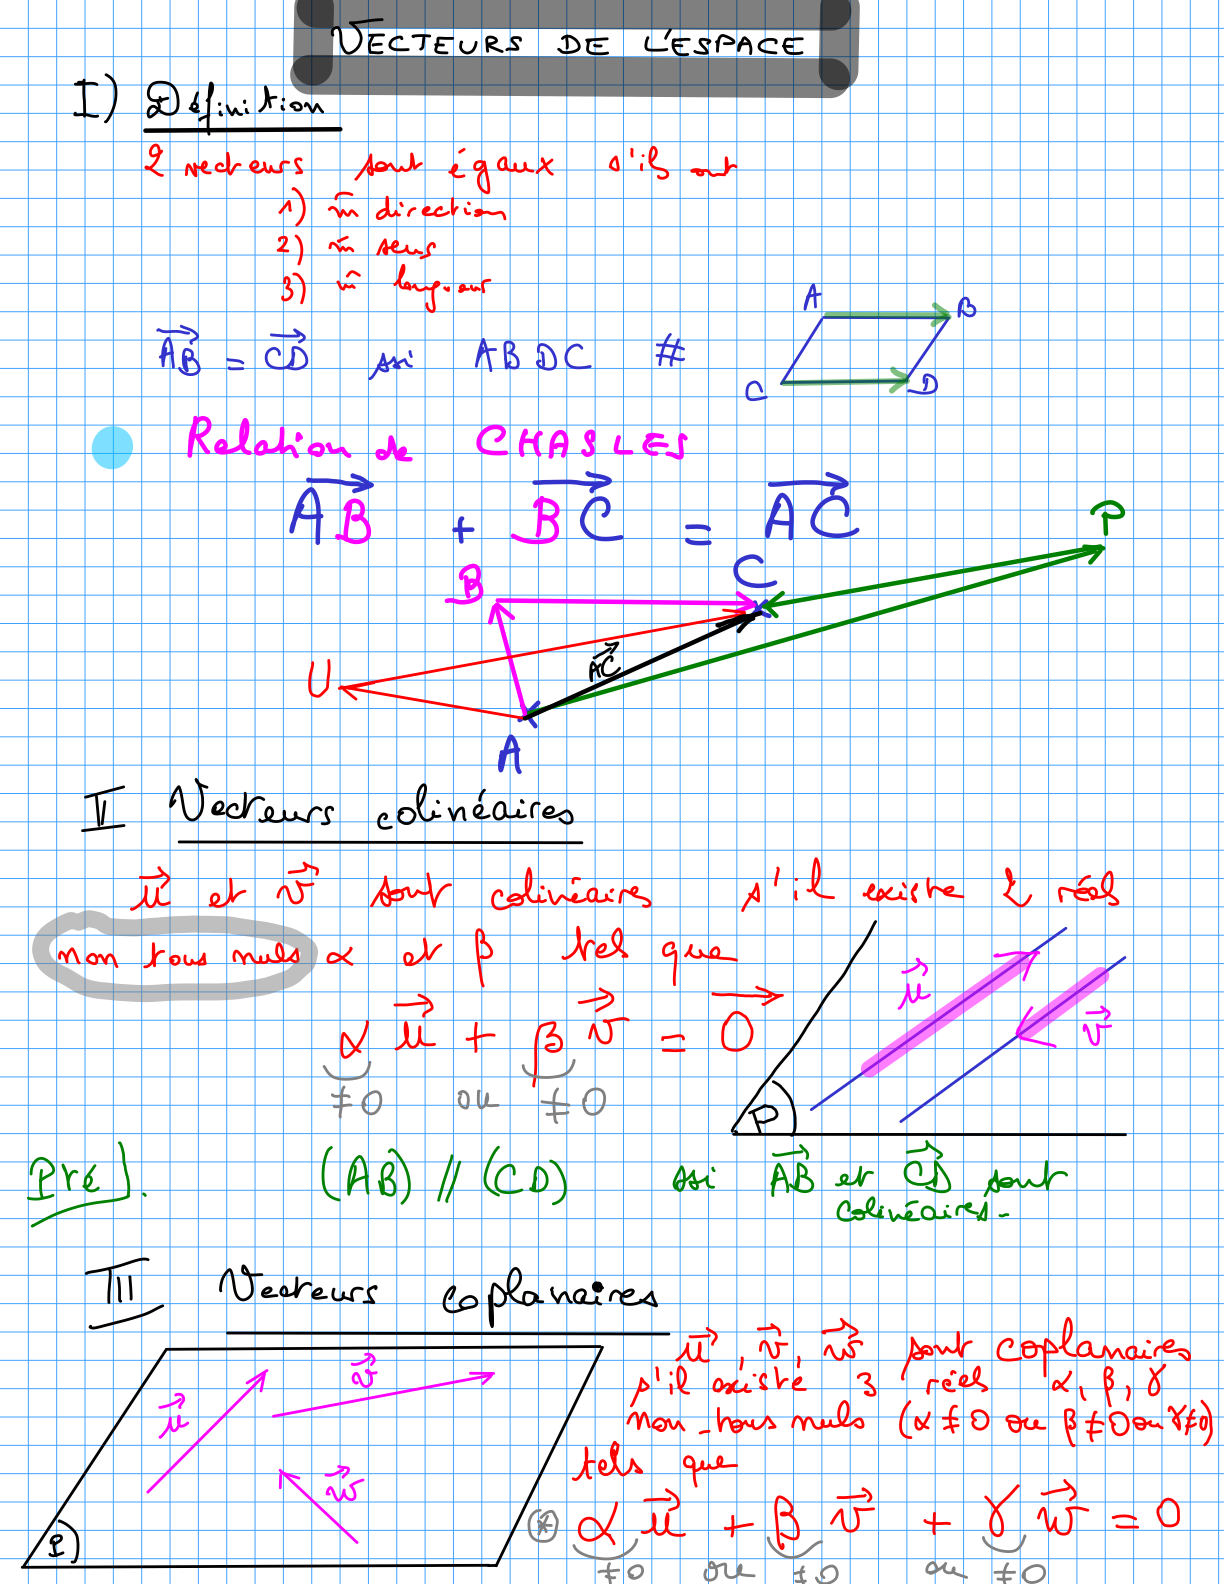 VECTEURS DE L'ESPACE
I) Définition
2 vecteurs sont égaux s'ils ont
1) m̂ direction
2) m̂ sens
3) m̂ longueur
A B
C D
$\overrightarrow{AB} = \overrightarrow{CD}$ ssi ABDC #
Relation de CHASLES
$\overrightarrow{AB} + \overrightarrow{BC} = \overrightarrow{AC}$
P
B C
$\overrightarrow{AC}$
U
A
II Vecteurs colinéaires
$\vec{u}$ et $\vec{v}$ sont colinéaires s'il existe 2 réels
non tous nuls α et β tels que
$\vec{u}$
$\vec{v}$
$\alpha \vec{u} + \beta \vec{v} = \vec{0}$
≠0 ou ≠0
P
(AB) // (CD) ssi $\overrightarrow{AB}$ et $\overrightarrow{CD}$ sont
colinéaires.
III Vecteurs coplanaires
$\vec{u}$ $\vec{v}$
$\vec{w}$
P
$\vec{u}, \vec{v}, \vec{w}$ sont coplanaires
s'il existe 3 réels α, β, γ
non tous nuls (α≠0 ou β≠0 ou γ≠0)
tels que
* $\alpha \vec{u} + \beta \vec{v} + \gamma \vec{w} = 0$
≠0 ou ≠0 ou ≠0